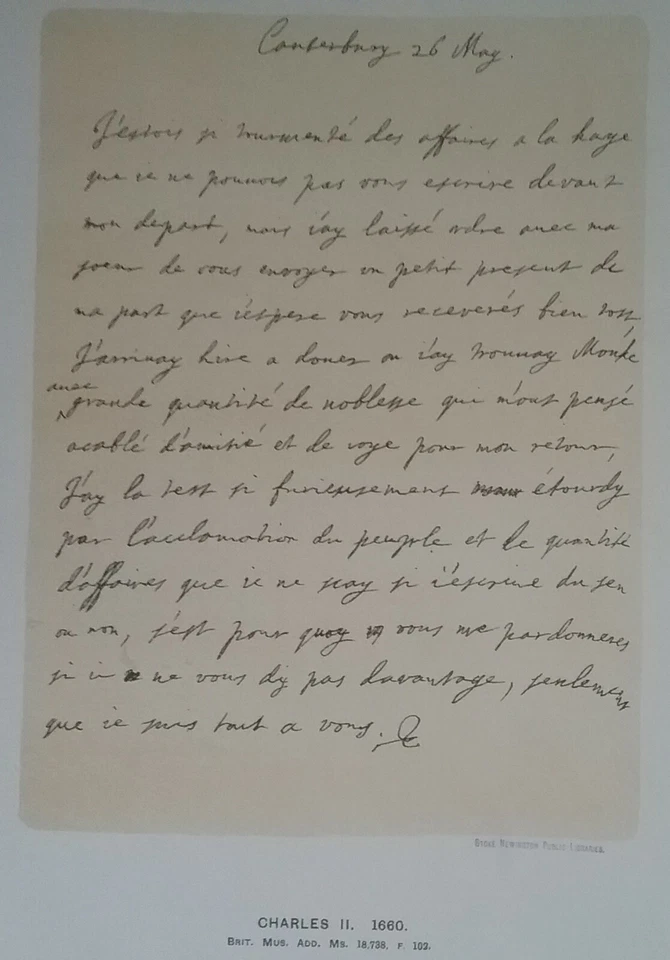 Canterbury 26 May.
J'estois si tourmenté des affaires a la haye
que ie ne pouvois pas vous escrire devant
mon depart, mais i'ay laissé ordre avec ma
soeur de vous envoyer un petit present de
ma part que i'espere vous receverés bien tost,
J'arrivay hire a dover ou i'ay trouvay Monke
avec
grande quantité de noblesse qui m'ont pensé
acablé d'amitié et de joye pour mon retour,
J'ay la test si furieusement étourdy
par l'aclamation du peuple et le quantité
d'affaires que ie ne scay si i'escrive du sen
ou non, s'est pour quoy vous me pardonneres
si ie ne vous dy pas davantage, seulement
que ie suis tout a vous. C
STOKE NEWINGTON PUBLIC LIBRARIES.
CHARLES II. 1660.
BRIT. MUS. ADD. MS. 18,738, F. 102.